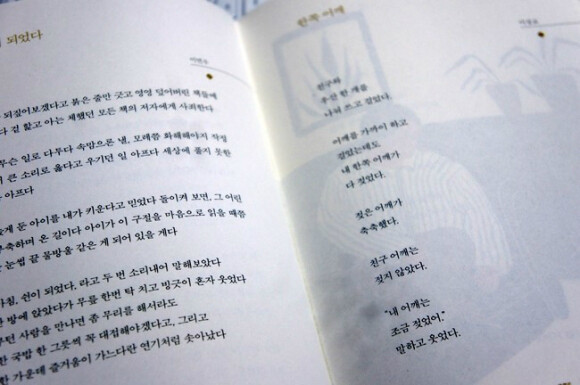 되었다
되짚어보겠다고 붉은 줄만 긋고 영영 덮어버린 책들에
다 겉 핥고 아는 체했던 모든 책의 저자에게 사죄한다
무슨 일로 다투다 속맘으론 낼, 모레쯤 화해해야지 작정
큰 소리로 옳다고 우기던 일 아프다 세상에 풀지 못한
아프다
둔 아이를 내가 키운다고 믿었다 돌이켜 보면, 그 어린
부축하며 온 길이다 아이가 이 구절을 마음으로 읽을 때쯤
눈썹 끝 물방울 같은 게 되어 있을 게다
쉰이 되었다, 라고 두 번 소리내어 말해보았다
방에 앉았다가 무릎 한번 탁 치고 빙긋이 혼자 웃었다
사람을 만나면 좀 무리를 해서라도
국밥 한 그릇씩 꼭 대접해야겠다고, 그리고
가운데 즐거움이 가느다란 연기처럼 솟아났다
한쪽 어깨
친구와
우산 한 개를
나눠 쓰고 걸었다.
어깨를 가까이 하고
걸었는데도
내 한쪽 어깨가
다 젖었다.
젖은 어깨가
축축했다.
친구 어깨는
젖지 않았다.
"내 어깨는
조금 젖었어."
말하고 웃었다.